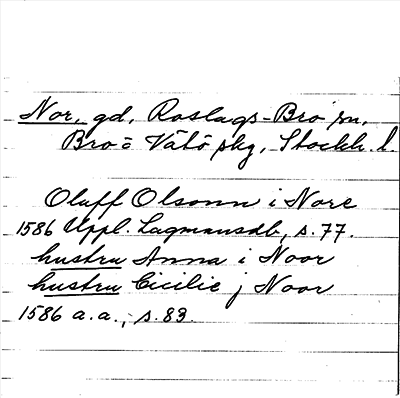 Nor, gd, Roslags-Bro sn,
Bro- o Vätö skg, Stockh. l.
Oluff Olsonn i Nore
1586 Uppl. Lagmansdb, s. 77.
hustru Anna i Noor
hustru Cicilie j Noor
1586 a.a., s. 83.